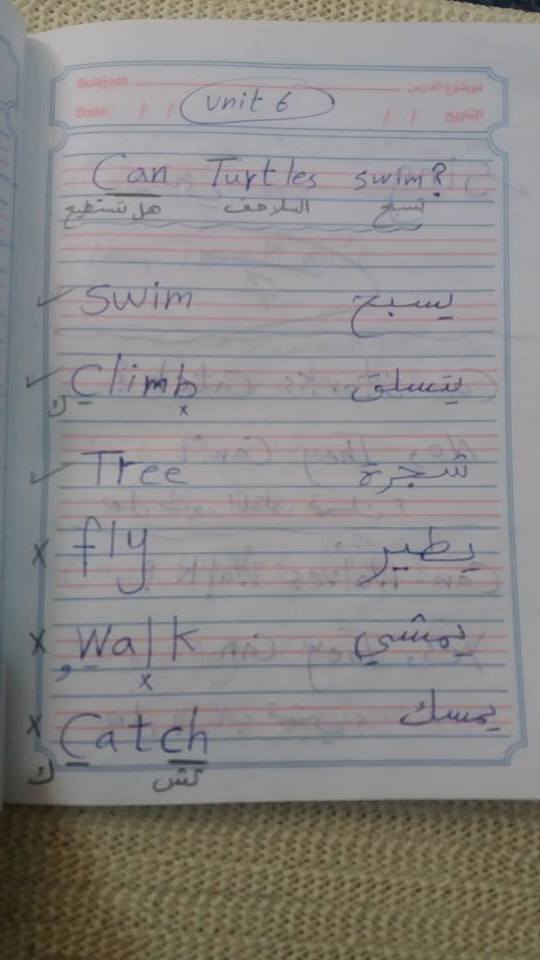 Subject موضوع الدرس
Date: / / unit 6 / / التاريخ
Can Turtles swim?
هل تستطيع السلاحف تسبح
✓ swim يسبح
✓ Climb يتسلق
ك x
✓ Tree شجرة
x fly يطير
x Walk يمشي
و x
x Catch يمسك
ك تش